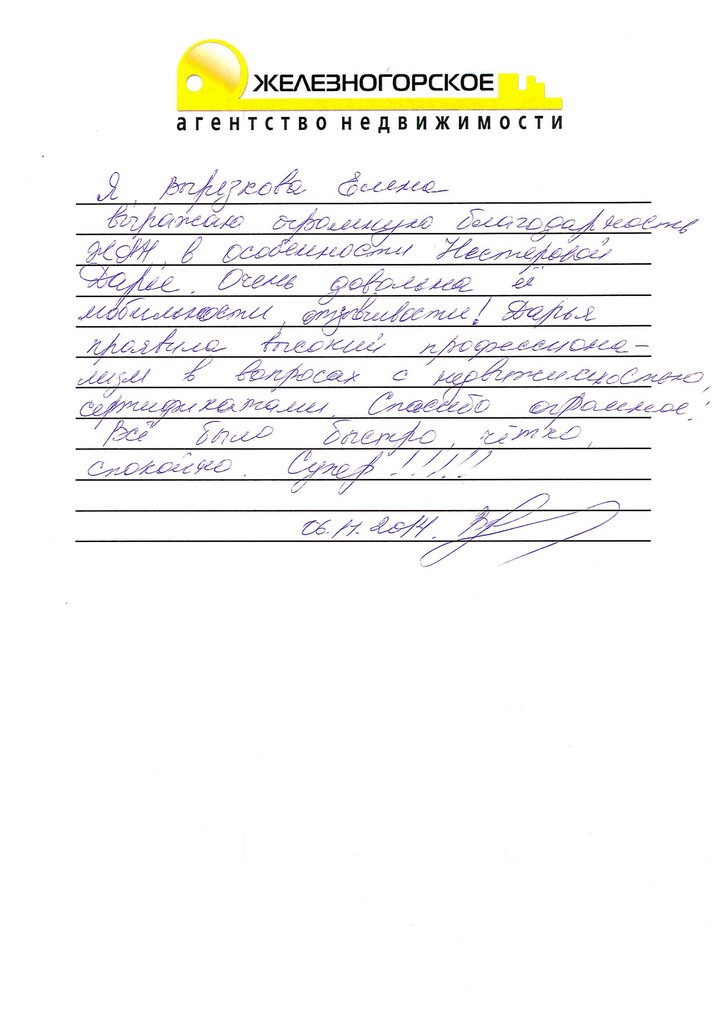 ЖЕЛЕЗНОГОРСКОЕ
агентство недвижимости
Я, Вырезкова Елена
выражаю огромную благодарность
ЖАН, в особенности Нестеровой
Дарье. Очень довольна её
мобильности, отзывчивости! Дарья
проявила высокий профессиона-
лизм в вопросах с недвижимостью,
сертификатами. Спасибо огромное!
Всё было быстро, чётко,
спокойно. Супер!!!!!
06.11.2014.